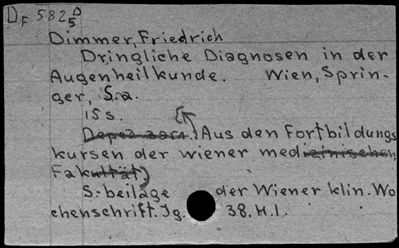 DF 582 D/5
Dimmer, Friedrich
Dringliche Diagnosen in der
Augenheilkunde. Wien, Sprin-
ger, S.a.
15 s.
(Aus den Fortbildungs
kursen der wiener medizinischen
Fakultät)
S.-beilage der Wiener klin. Wo
chenschrift. Jg. 38. H. 1.